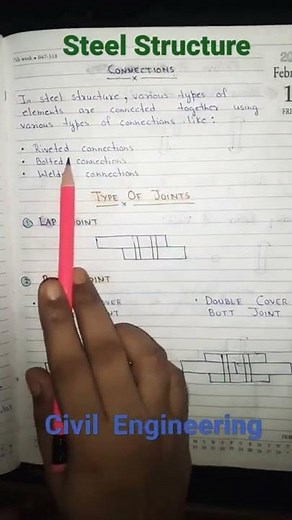 Steel Structure
7th week • 047-318
Febr
1
FRI
CONNECTIONS
In steel structure, various types of
elements are connected together using
various types of connections like:
• Riveted connections
• Bolted connections
• Welded connections
TYPE OF JOINTS
① LAP JOINT
② JOINT
COVER
• DOUBLE COVER
BUTT JOINT
Civil Engineering